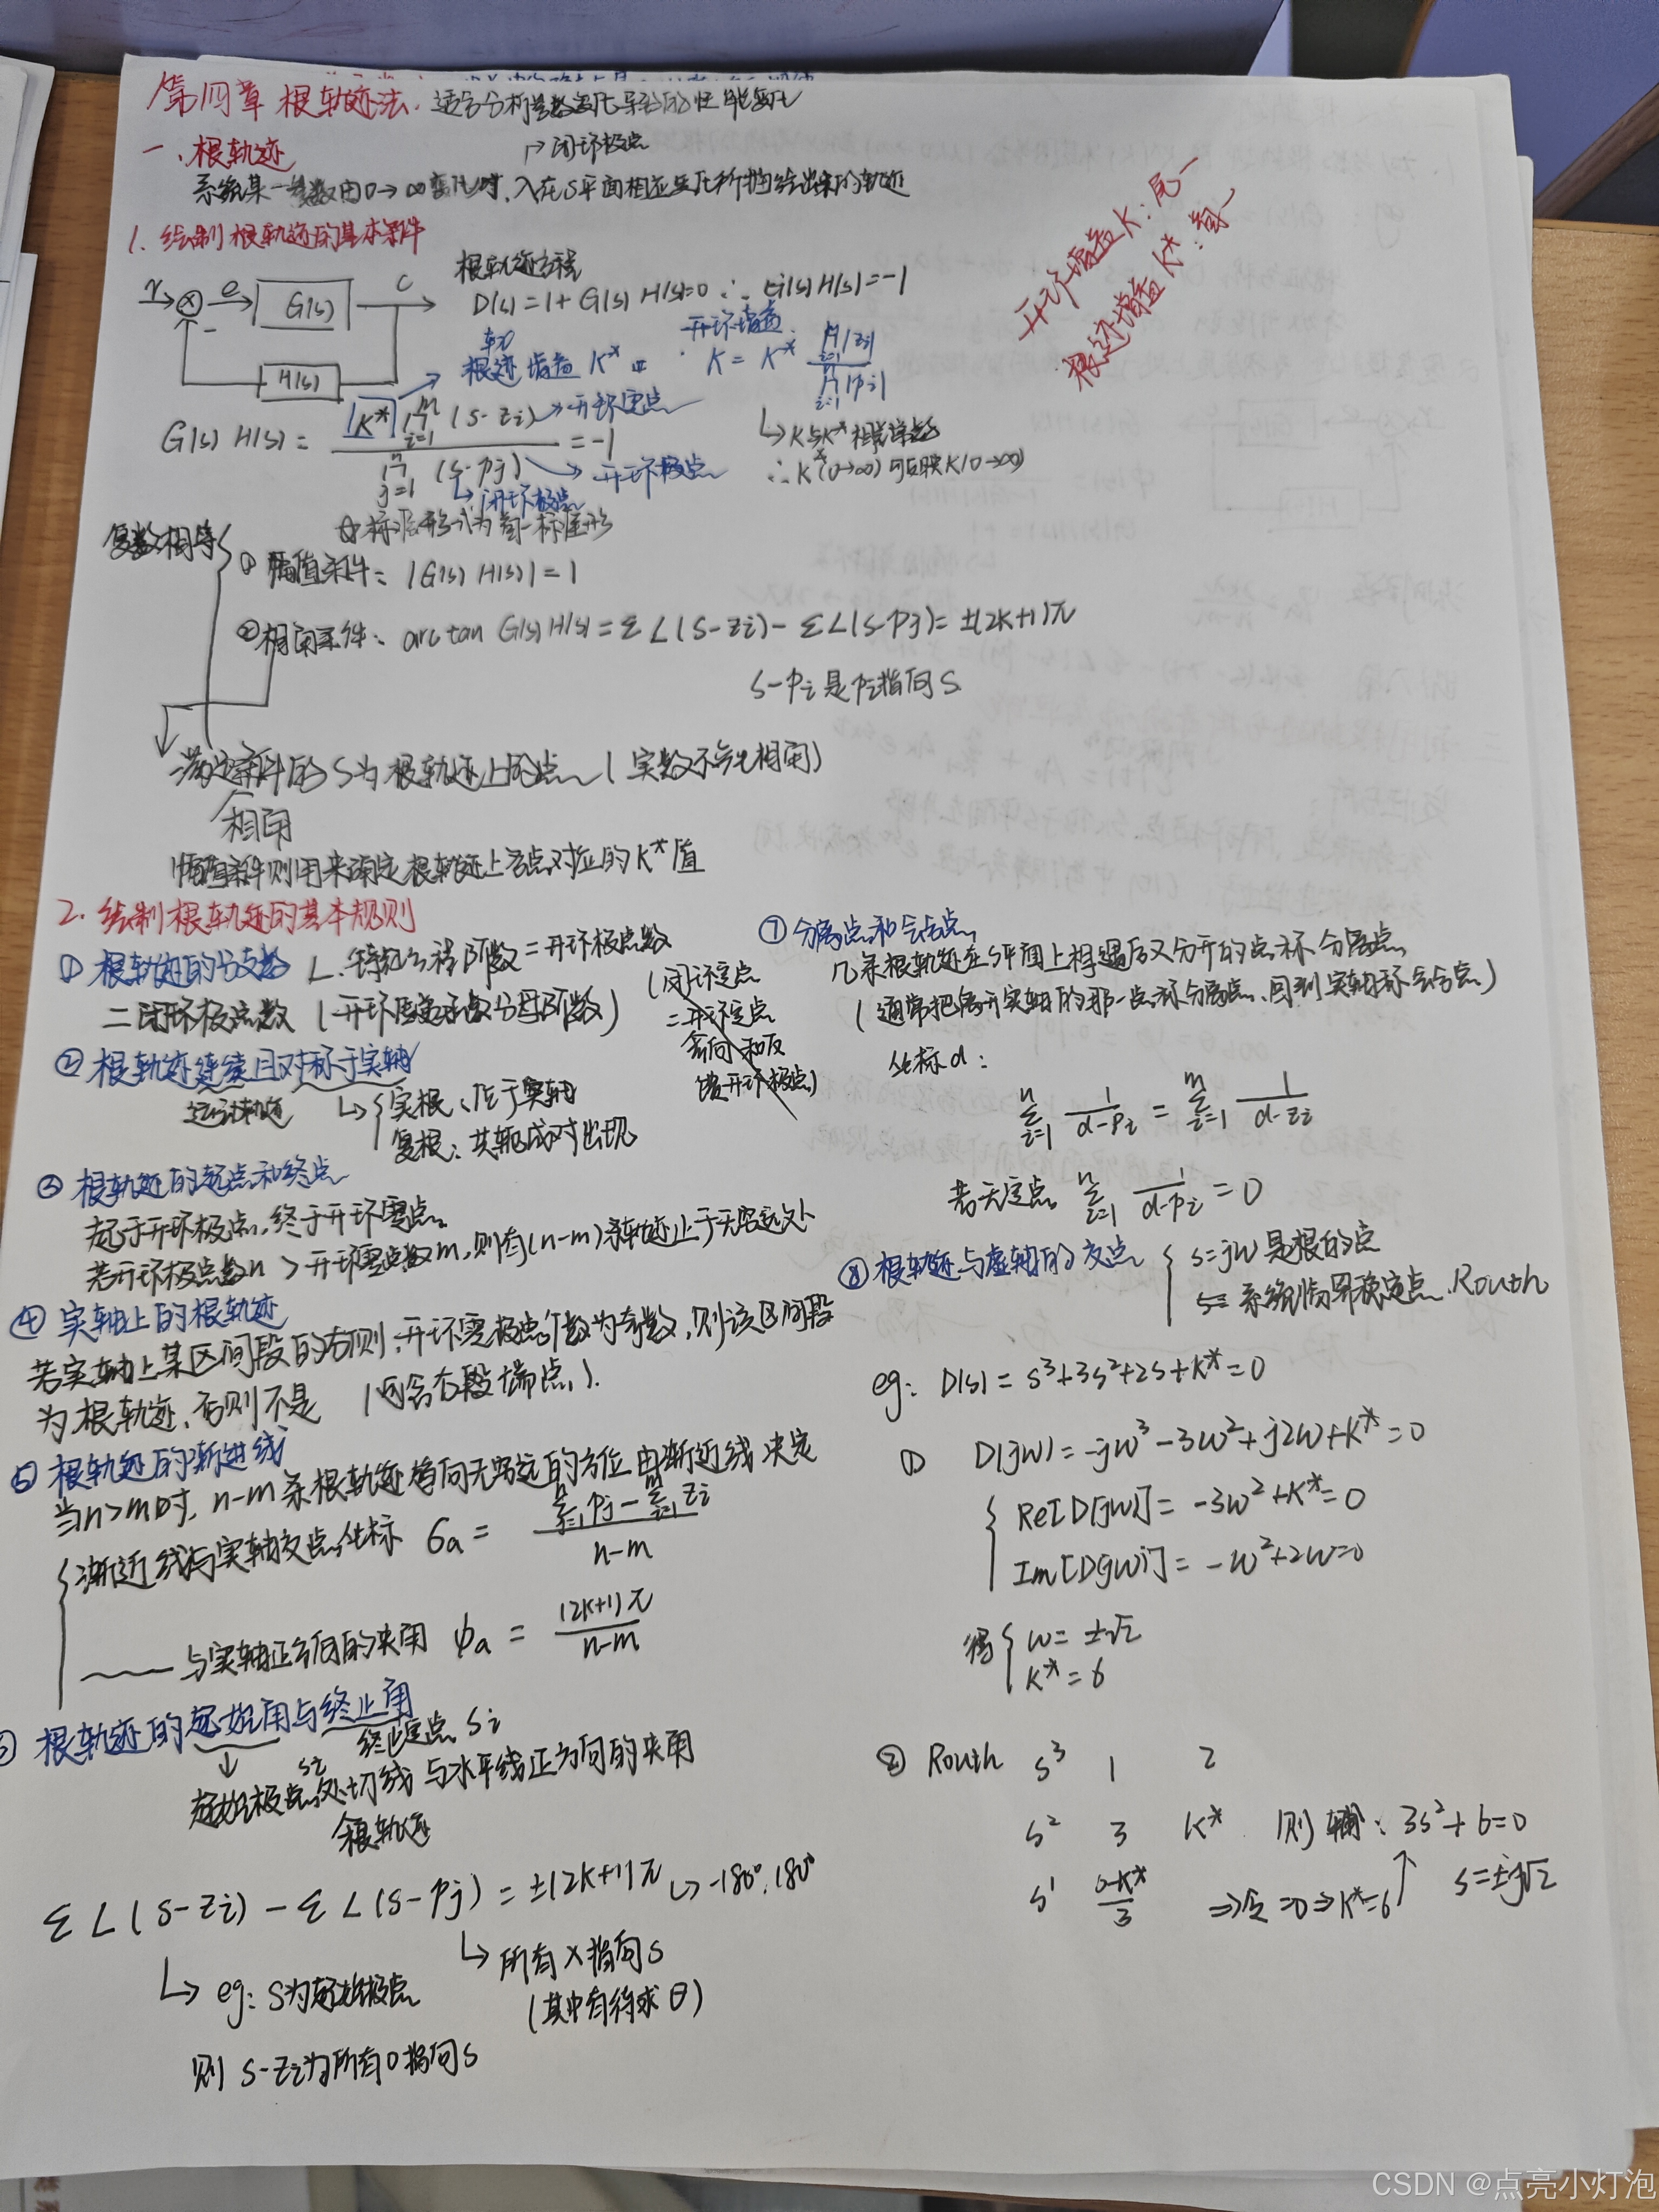 第四章 根轨迹法. 适合分析参数变化导致的性能变化
一、根轨迹
↱闭环极点
系统某一参数由0→∞变化时, λ在S平面相应变化所描绘出来的轨迹
1. 绘制根轨迹的基本条件
开环增益K: 尾一
根迹增益K*: 首一
r e G(s) c
- H(s)
根轨迹方程
D(s) = 1 + G(s) H(s)=0 ∴ G(s) H(s) = -1
轨
根迹增益 K*
开环增益
K = K* ∏i=1 |zi| / ∏i=1 |pj|
G(s) H(s) = K* ∏i=1^m (s - zi) / ∏j=1^n (s - pj) = -1
→开环零点
→开环极点
↳闭环极点
↳K与K*相差常数
∴ K*(0→∞) 可反映K(0→∞)
标准形式为首一标准形
复数相等
① 幅值条件: |G(s) H(s)| = 1
② 相角条件: arctan G(s) H(s) = Σ∠(s-zi) - Σ∠(s-pj) = ±(2k+1)π
s-pi 是pi指向s
满足条件的S为根轨迹上的点 (实数不考虑相角)
相角
幅值条件则用来确定根轨迹上各点对应的K*值
2. 绘制根轨迹的基本规则
① 根轨迹的分支数 特征方程阶数 = 开环极点数
= 闭环极点数 (开环传递函数分母阶数)
(闭环零点
= 开环零点
前向 和反
馈开环极点)
② 根轨迹连续且对称于实轴
运动轨迹
↳ { 实根: 位于实轴
复根: 共轭成对出现
③ 根轨迹的起点和终点
起于开环极点, 终于开环零点.
若开环极点数n > 开环零点数m, 则有(n-m)条轨迹止于无穷远处
④ 实轴上的根轨迹
若实轴上某区间段的右侧, 开环零极点个数为奇数, 则该区间段
为根轨迹, 否则不是 (包含右段端点).
⑤ 根轨迹的渐进线
当n>m时, n-m条根轨迹趋向无穷远的方位由渐近线决定
渐近线与实轴交点坐标 σa = (Σj=1^n pj - Σi=1^m zi) / (n-m)
—— 与实轴正方向的夹角 φa = (2k+1)π / (n-m)
根轨迹的起始角与终止角
终止零点 si
起始极点si处切线与水平线正方向的夹角
根轨迹
Σ∠(s-zi) - Σ∠(s-pj) = ±(2k+1)π ↳ -180°, 180°
↳ eg: s为起始极点
↳ 所有×指向s
(其中有待求θ)
则 s-zi为所有o指向s
⑦ 分离点和会合点
几条根轨迹在s平面上相遇后又分开的点称分离点
(通常把离开实轴的那一点称分离点, 回到实轴称会合点)
坐标d:
Σi=1^n 1/(d-pi) = Σi=1^m 1/(d-zi)
若无零点 Σi=1^n 1/(d-pi) = 0
⑧ 根轨迹与虚轴的交点 { s=jw 是根的点
系统临界稳定点, Routh
eg: D(s) = s³+3s²+2s+K* = 0
① D(jw) = -jw³ - 3w² + j2w + K* = 0
{ Re[D(jw)] = -3w² + K* = 0
Im[D(jw)] = -w³ + 2w = 0
得 { w = ±√2
K* = 6
② Routh s³ 1 2
s² 3 K* 则 辅: 3s² + 6 = 0
s¹ (6-K*)/3 ⇒ 令 =0 ⇒ K*=6 s = ±j√2
CSDN @点亮小灯泡